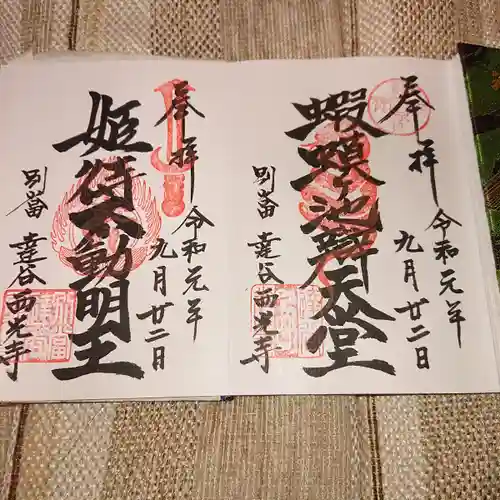 奉拝
蝦蟆ヶ池辯天堂
令和元年
九月廿二日
別當
達谷西光寺
奉拝
姫待不動明王
令和元年
九月廿二日
別當
達谷西光寺